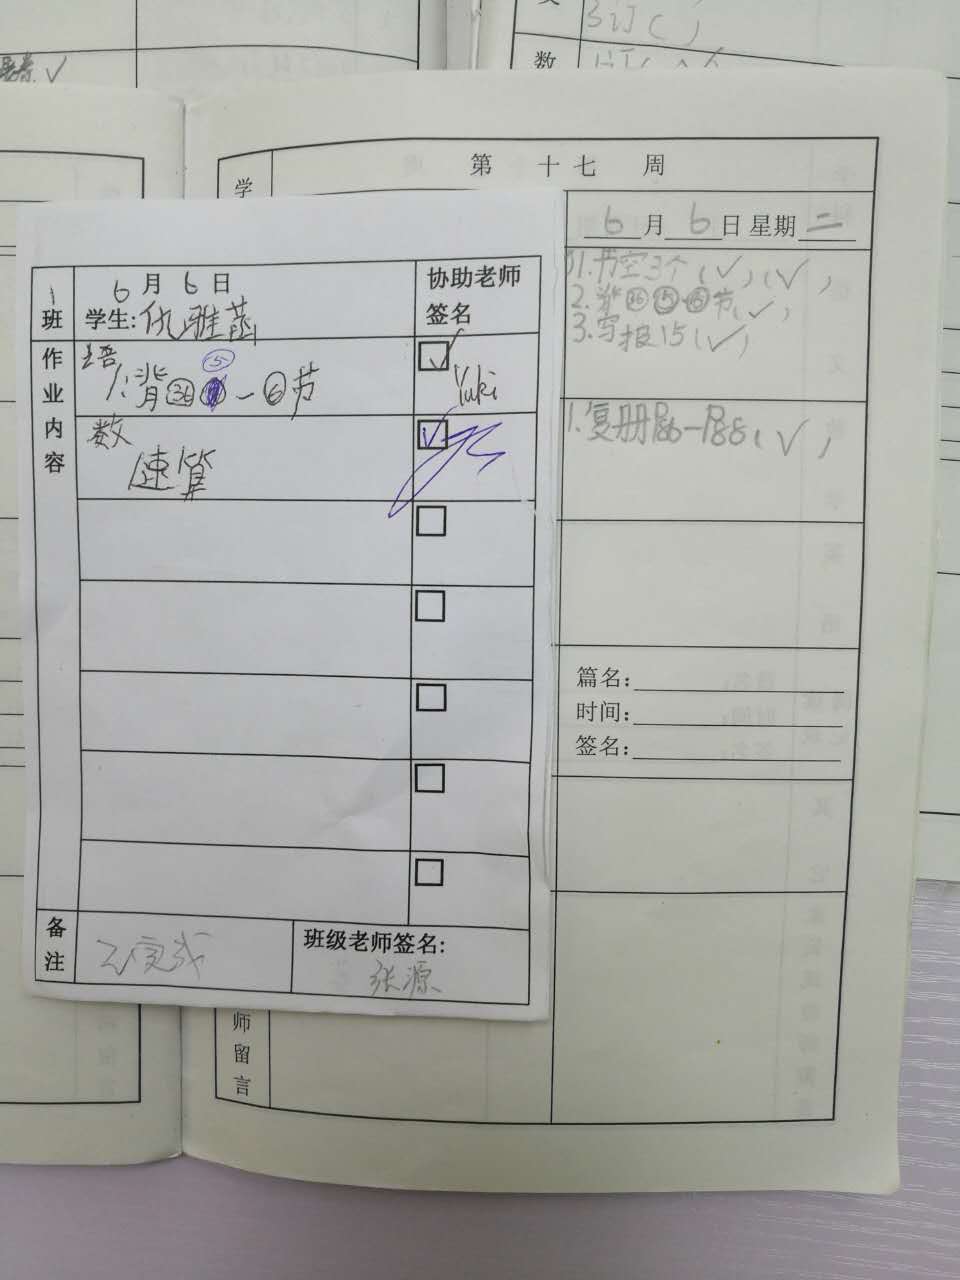 3订( )
数
第 十七 周
学
6月6日 星期二
1.书空3个(✓)(✓)
2.背㊱⑤-⑥节(✓)
3.写报15(✓)
1.复册P86-P88(✓)
篇名:
时间:
签名:
师
留
言
1班
6月6日
学生:仇雅菡
协助老师
签名
作业内容
语
1.背㊱⑤-⑥节
✓
Yuki
数
速算
✓
备注
已完成
班级老师签名:
张源